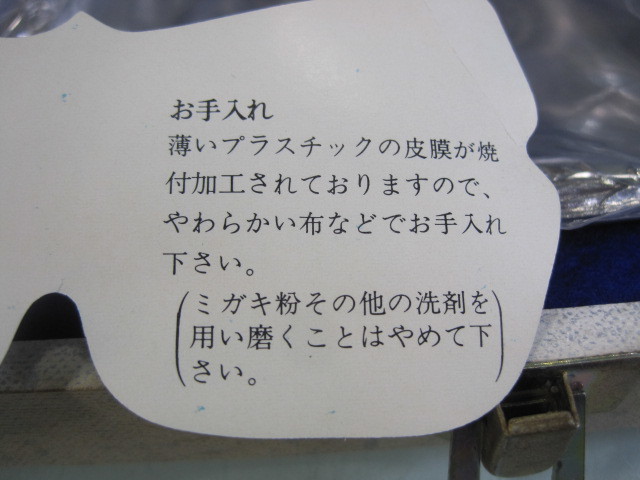 お手入れ
薄いプラスチックの皮膜が焼
付加工されておりますので、
やわらかい布などでお手入れ
下さい。
(ミガキ粉その他の洗剤を
用い磨くことはやめて下
さい。)